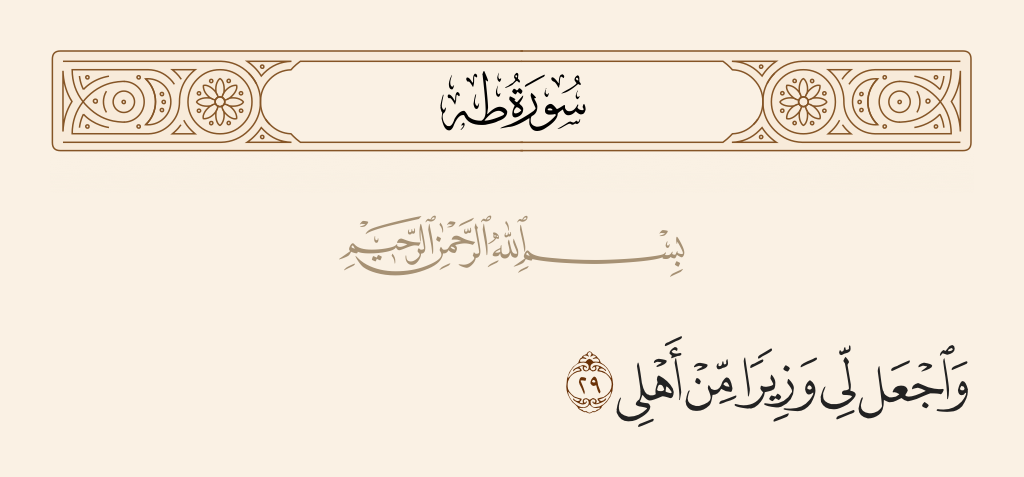 سُورَةُ طه
بِسْمِ ٱللَّهِ ٱلرَّحْمَٰنِ ٱلرَّحِيمِ
وَٱجْعَل لِّى وَزِيرًا مِّنْ أَهْلِى ٢٩